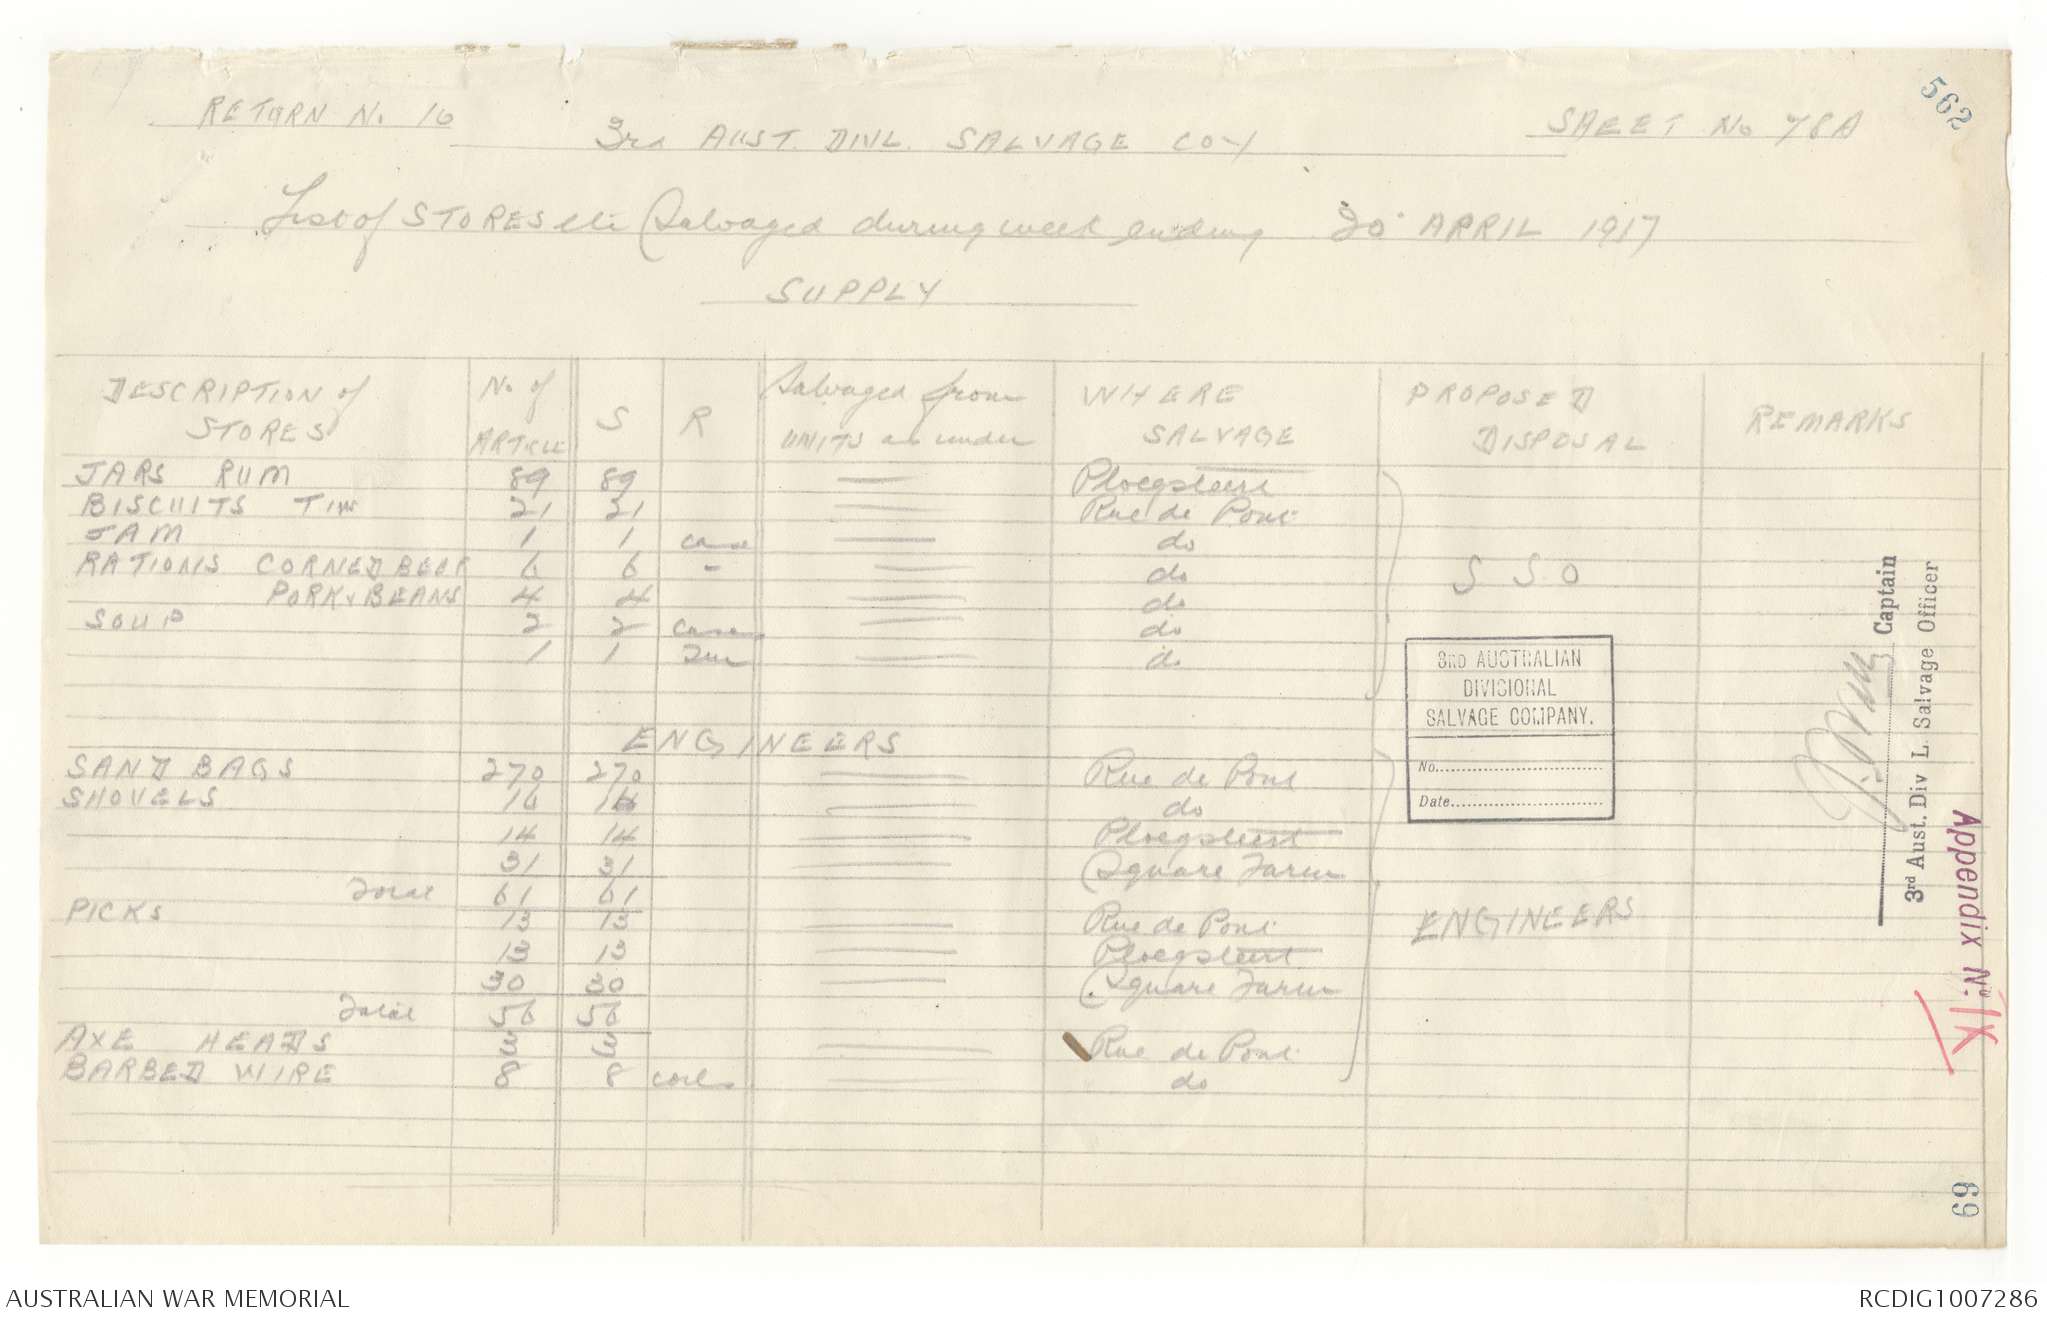 562
RETURN No. 16
3rd AUST. DIVL. SALVAGE COY
SHEET No 78A
List of STORES etc Salvaged during week ending 20 APRIL 1917
SUPPLY
DESCRIPTION of STORES | No. of ARTICLE | S | R | Salvaged from UNITS as under | WHERE SALVAGE | PROPOSED DISPOSAL | REMARKS
JARS RUM 89 89 — Ploegsteert
BISCUITS Tins 21 21 — Rue de Pont
JAM 1 1 case — do
RATIONS CORNED BEEF 6 6 - — do
PORK & BEANS 4 4 — do
SOUP 2 2 Cases — do
1 1 Tin — do
S S O
ENGINEERS
SAND BAGS 270 270 — Rue de Pont
SHOVELS 16 16 — do
14 14 — Ploegsteert
31 31 — Square Farm
Total 61 61
PICKS 13 13 — Rue de Pont
13 13 — Ploegsteert
30 30 — Square Farm
Total 56 56
AXE HEADS 3 3 — Rue de Pont
BARBED WIRE 8 8 coils — do
ENGINEERS
3RD AUSTRALIAN
DIVISIONAL
SALVAGE COMPANY.
No.
Date
Captain
3rd Aust. Div L. Salvage Officer
Appendix No. 1K
69
AUSTRALIAN WAR MEMORIAL
RCDIG1007286